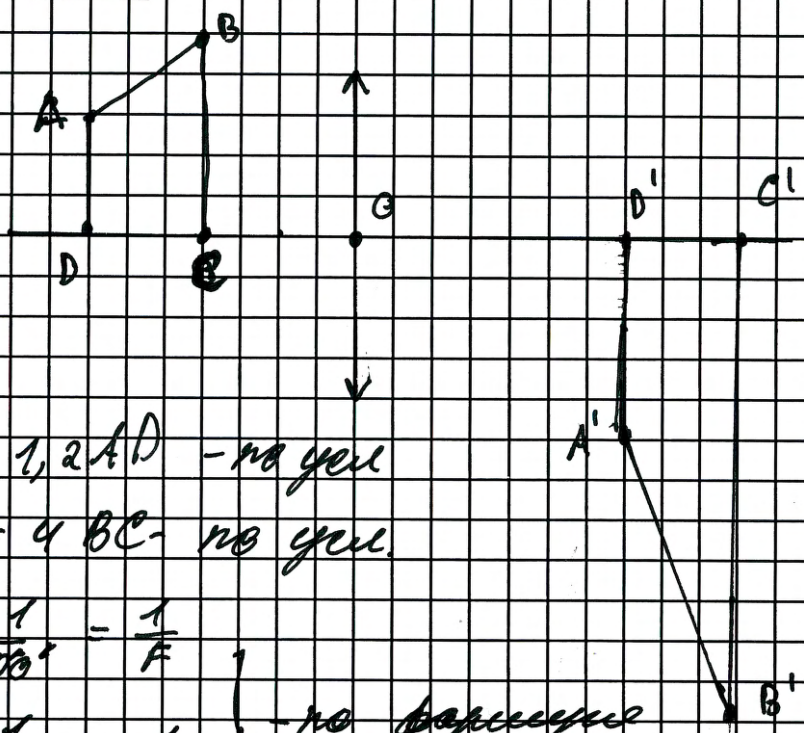 B
A
O
D'
C'
D
C
1,2 AD - по усл
A'
4 BC - по усл.
1 = 1/F
B'
- по формуле